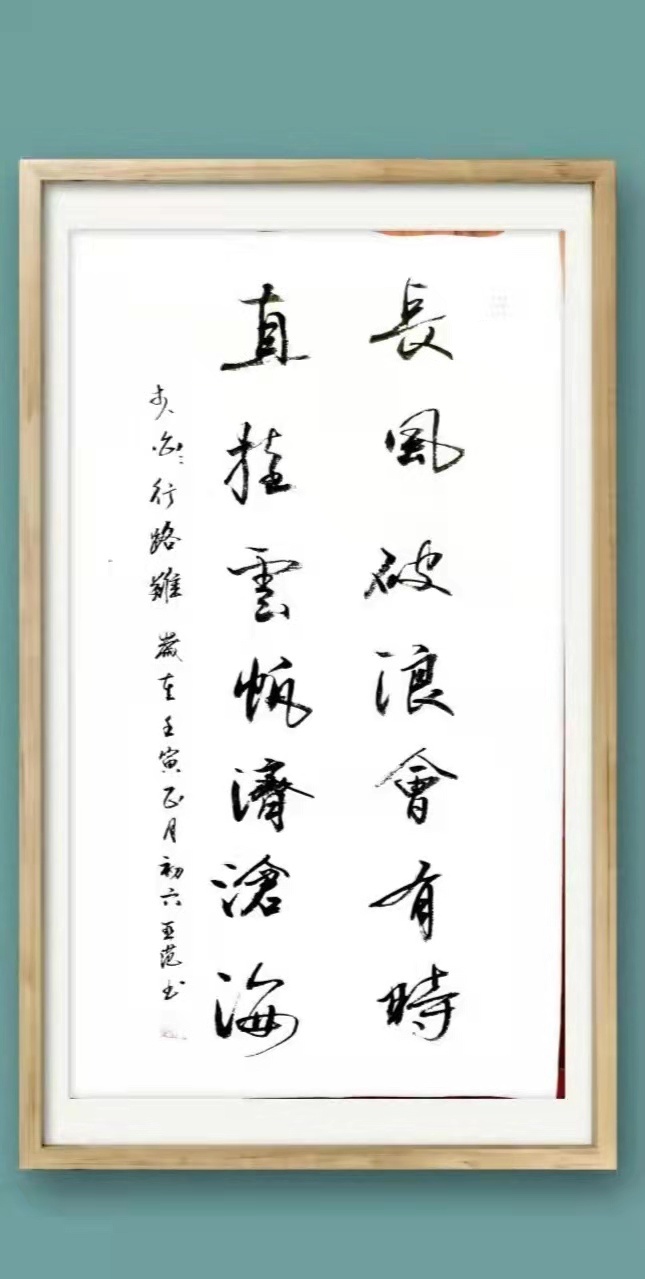 長風破浪會有時
直挂雲帆濟滄海
白行路難 歲在壬寅正月初六亚范书